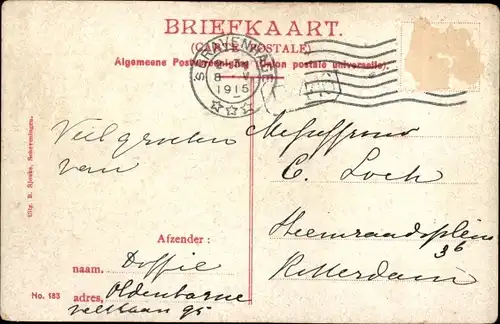 BRIEFKAART.
(CARTE POSTALE)
Algemeene Postvereeniging (Union postale universelle).
'S GRAVENHAGE
8 V
1915
Veel groeten
van
Mejuffrouw
C. Loch
Heemraadsplein
36
Rotterdam
Afzender:
naam. Doffie
adres, Oldenbarne
veltlaan 95
No. 583
Uitg. B. Sjouke, Scheveningen.